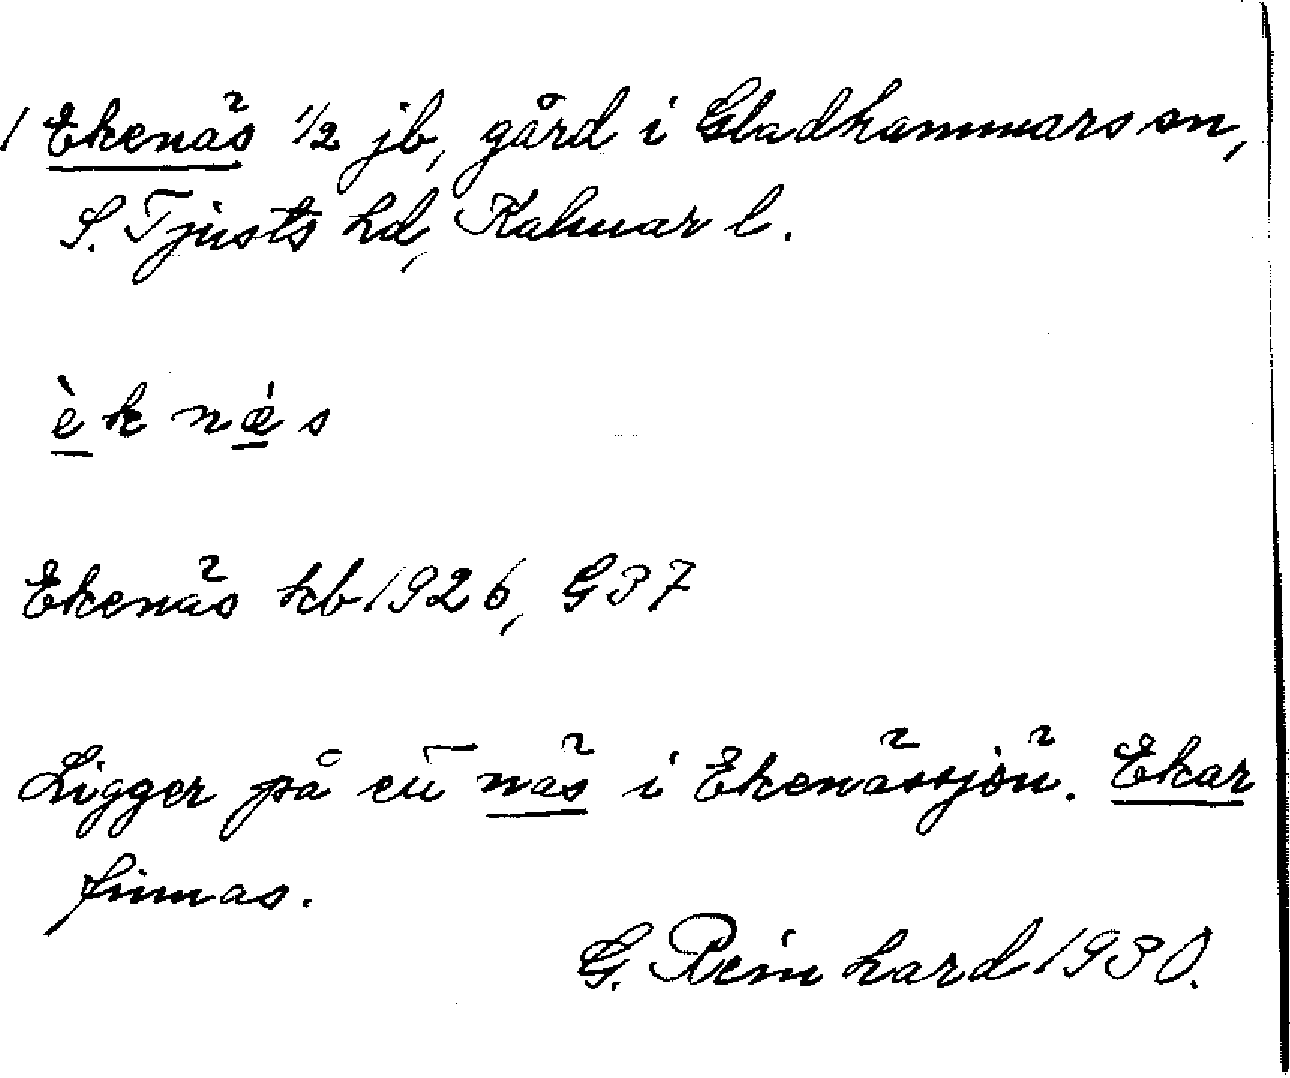 1 Ekenäs 1/2 jb, gård i Gladhammars sn,
S. Tjusts hd, Kalmar l.
è k n ǽ s
Ekenäs kb 1926, G 37
Ligger på ett näs i Ekenässjön. Ekar
finnas.
G. Reinhard 1930.